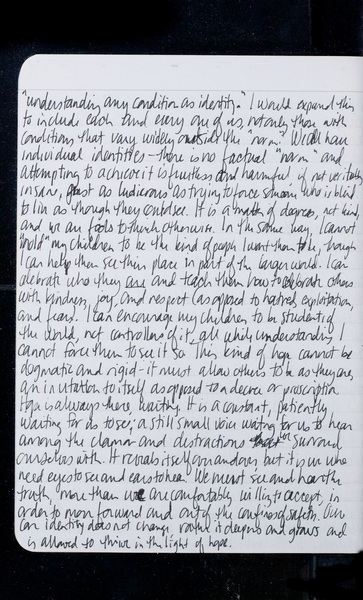 "understanding any condition as identity." I would expand this
to include each and every one of us, not only those with
conditions that vary widely outside the "norm." We all have
individual identities – there is no factual "norm" and
attempting to achieve it is fruitless and harmful if not veritably
insane, just as ludicrous as trying to force someone who is blind
to live as though they could see. It is a matter of degrees, not kind,
and we are fools to think otherwise. In the same way, I cannot
"mold" my children to be the kind of people I want them to be, though
I can help them see their place in part of the larger world. I can
celebrate who they are and teach them how to celebrate others
with kindness, joy, and respect (as opposed to hatred, exploitation,
and fear). I can encourage my children to be students of
the world, not controllers of it, all while understanding I
cannot force them to see it so. This kind of hope cannot be
dogmatic and rigid – it must allow others to be as they are,
an invitation to itself as opposed to a decree or proscription.
Hope is always there, waiting. It is a constant, patiently
waiting for us to see; a still small voice waiting for us to hear
among the clamor and distractions that surround
ourselves with. It reveals itself over and over but it is we who
need eyes to see and ears to hear. We must see and hear the
truth, more than we are comfortably willing to accept, in
order to move forward and out of the confines of safety. Our
core identity does not change rather it deepens and grows and
is allowed to thrive in the light of hope.